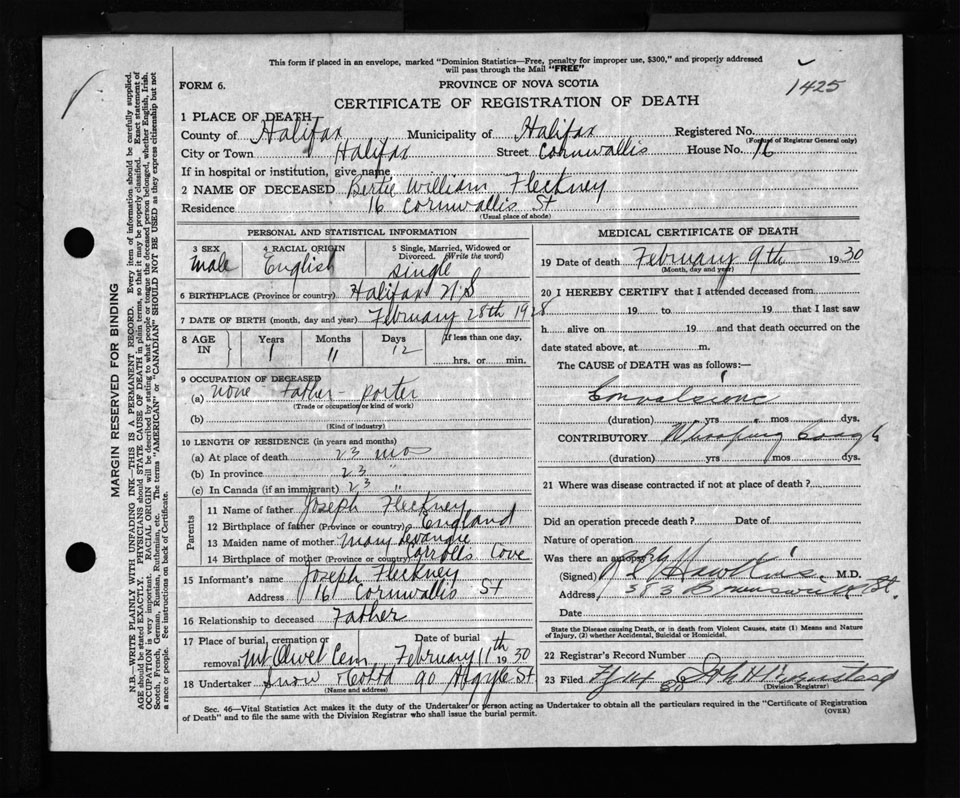 This form if placed in an envelope, marked "Dominion Statistics—Free, penalty for improper use, $300," and properly addressed
will pass through the Mail "FREE"
1425
FORM 6.
PROVINCE OF NOVA SCOTIA
CERTIFICATE OF REGISTRATION OF DEATH
1 PLACE OF DEATH
County of Halifax Municipality of Halifax Registered No.
(For use of Registrar General only)
City or Town Halifax Street Cornwallis House No. 16
If in hospital or institution, give name
2 NAME OF DECEASED Bertie William Fleckney
Residence 16 Cornwallis St
(Usual place of abode)
PERSONAL AND STATISTICAL INFORMATION
3 SEX 4 RACIAL ORIGIN 5 Single, Married, Widowed or
Divorced. (Write the word)
Male English single
6 BIRTHPLACE (Province or country) Halifax N S
7 DATE OF BIRTH (month, day and year) February 28th 1928
8 AGE IN Years Months Days If less than one day,
1 11 12 hrs. or min.
9 OCCUPATION OF DECEASED
(a) none Father - porter
(Trade or occupation or kind of work)
(b)
(Kind of industry)
10 LENGTH OF RESIDENCE (in years and months)
(a) At place of death 23 mos
(b) In province 23 "
(c) In Canada (if an immigrant) 23 "
Parents
11 Name of father Joseph Fleckney
12 Birthplace of father (Province or country) England
13 Maiden name of mother Mary
14 Birthplace of mother (Province or country) Carrolls Cove
15 Informant's name Joseph Fleckney
Address 16 Cornwallis St
16 Relationship to deceased Father
17 Place of burial, cremation or Date of burial
removal Mt Olivet Cem. February 11th 1930
18 Undertaker Snow 90 Argyle St.
(Name and address)
MEDICAL CERTIFICATE OF DEATH
19 Date of death February 9th 1930
(Month, day and year)
20 I HEREBY CERTIFY that I attended deceased from
19 to 19 that I last saw
h alive on 19 and that death occurred on the
date stated above, at m.
The CAUSE of DEATH was as follows:—
Convulsions
(duration) yrs mos dys.
CONTRIBUTORY Whooping Cough
(duration) yrs mos dys.
21 Where was disease contracted if not at place of death?
Did an operation precede death? Date of
Nature of operation
Was there an autopsy
(Signed) Hawkins. M.D.
Address 383 Brunswick St.
Date
State the Disease causing Death, or in death from Violent Causes, state (1) Means and Nature
of Injury, (2) whether Accidental, Suicidal or Homicidal.
22 Registrar's Record Number
23 Filed
(Division Registrar)
Sec. 46—Vital Statistics Act makes it the duty of the Undertaker or person acting as Undertaker to obtain all the particulars required in the "Certificate of Registration
of Death" and to file the same with the Division Registrar who shall issue the burial permit.
(OVER)
MARGIN RESERVED FOR BINDING
N.B.—WRITE PLAINLY WITH UNFADING INK—THIS IS A PERMANENT RECORD. Every item of information should be carefully supplied.
AGE should be stated EXACTLY. PHYSICIANS should STATE CAUSE OF DEATH in plain terms, so that it may be properly classified. Exact statement of
OCCUPATION is very important. RACIAL ORIGIN will be described by stating to what people or tongue the deceased person belonged, whether English, Irish,
Scotch, French, German, Russian, Ruthenian, etc. The terms "AMERICAN" or "CANADIAN" SHOULD NOT BE USED as they express citizenship but not
a race or people. See instructions on back of Certificate.